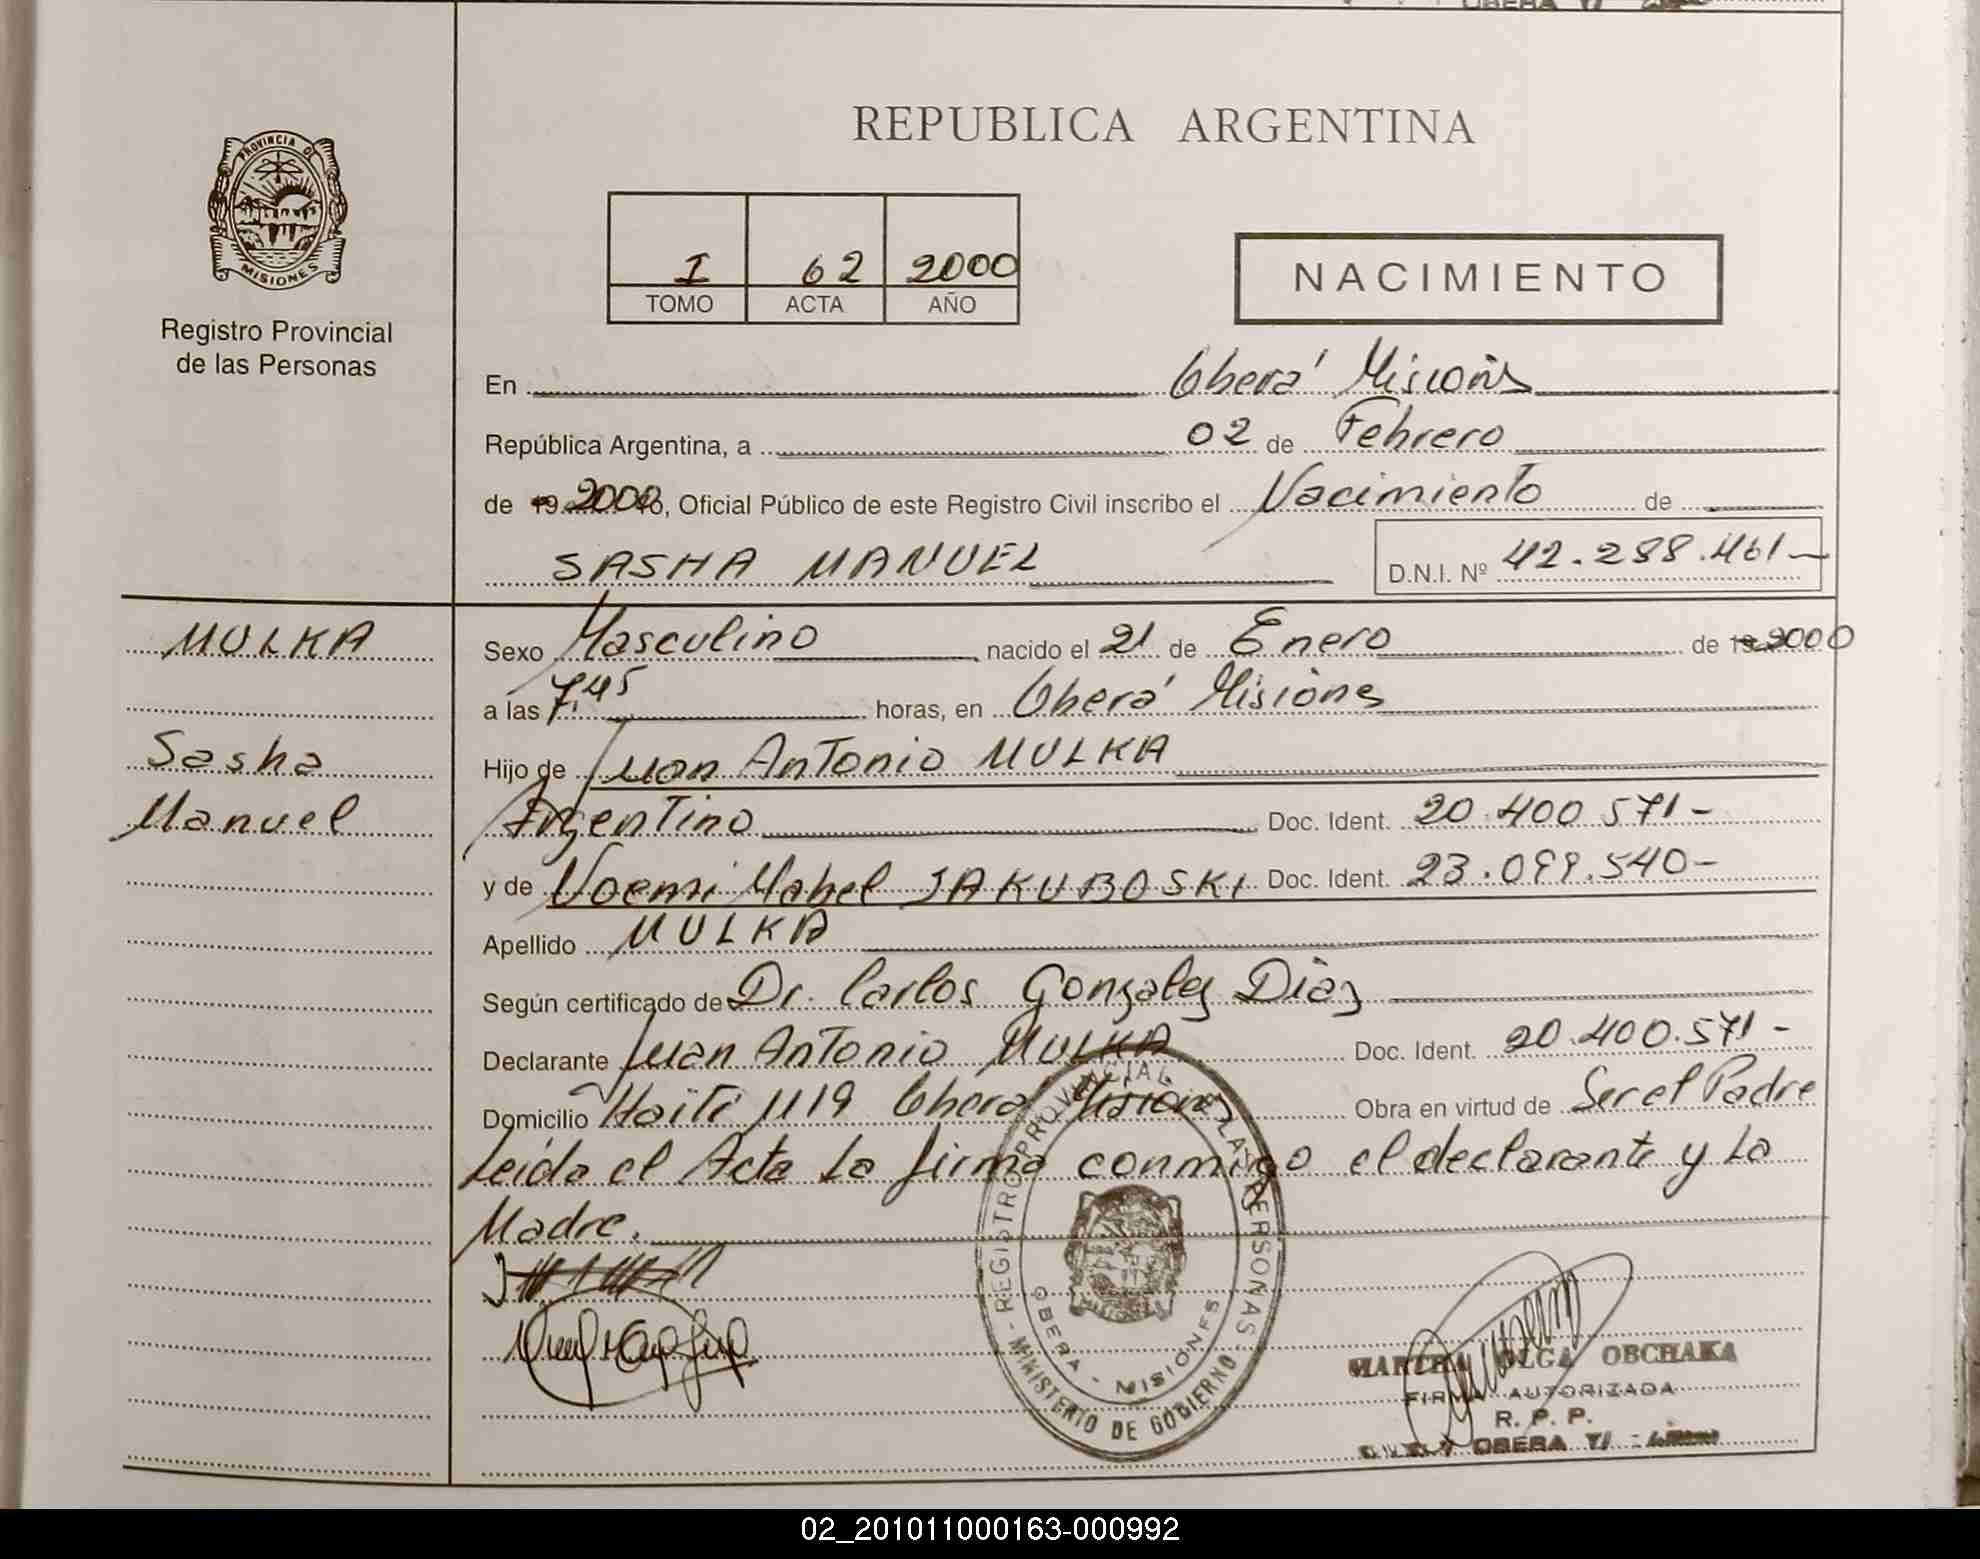 PROVINCIA DE
MISIONES
Registro Provincial
de las Personas
REPUBLICA ARGENTINA
I 62 2000
TOMO ACTA AÑO
NACIMIENTO
En Oberá Misiones
República Argentina, a 02 de Febrero
de 19 2000 yo, Oficial Público de este Registro Civil inscribo el Nacimiento de
SASHA MANUEL D.N.I. Nº 42.288.461-
MULKA
Sasha
Manuel
Sexo Masculino nacido el 21 de Enero de 19 2000
a las 7,45 horas, en Oberá Misiones
Hijo de Juan Antonio MULKA
Argentino Doc. Ident. 20.400.571-
y de Noemi Mabel JAKUBOSKI Doc. Ident. 23.099.540-
Apellido MULKA
Según certificado de Dr. Carlos Gonzalez Diaz
Declarante Juan Antonio MULKA Doc. Ident. 20.400.571-
Domicilio Haiti 1119 Oberá Misiones Obra en virtud de Ser el Padre
Leida el Acta La firma conmigo el declarante y La
Madre.
REGISTRO PROVINCIAL LAS PERSONAS
OBERA - MISIONES
MINISTERIO DE GOBIERNO
MARTHA OLGA OBCHAKA
FIRMA AUTORIZADA
R. P. P.
OBERA
02_201011000163-000992